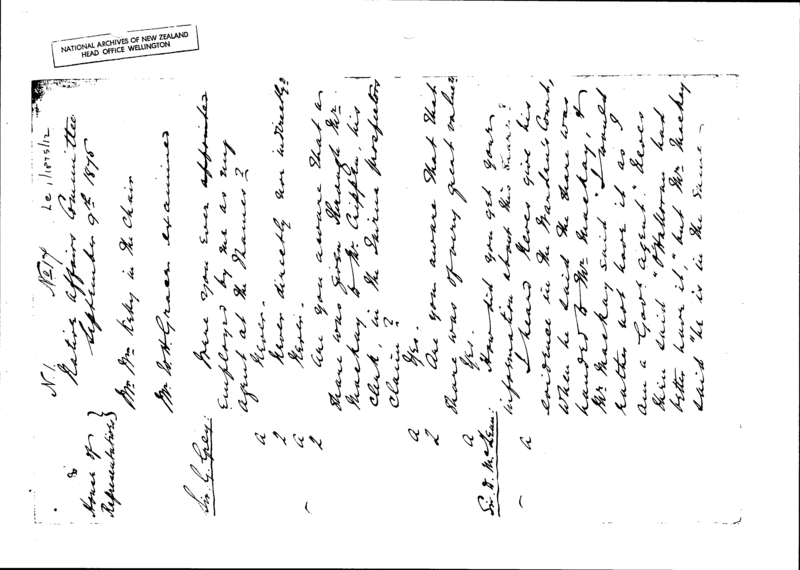 NATIONAL ARCHIVES OF NEW ZEALAND
HEAD OFFICE WELLINGTON
N. 1. No 17 Le 1/1875/12
House of
Representatives
Native Affairs Committee
September 9th 1875
Mr. Wm Kelly in the Chair
Mr. W. H. Grace examined
Sir. G. Grey: Were you ever appointed
Employed by me as my
Agent at the Thames?
a Never.
2 Never directly nor indirectly?
a Never.
2 Are you aware that a
share was given through Mr.
Mackay to Mr. Crippen, his
clerk, in the Prospectors
Claim?
a Yes.
2 Are you aware that that
share was of very great value?
a Yes.
Sir D. McLean: How did you get your
information about this share?
a I heard Neves give his
evidence in the Warden's Court,
when he said the share was
handed to Mr. Mackay, &
Mr Mackay said "I would
rather not have it as I
am a Govt agent." Neves
then said "O'Halloran had
better have it," but Mr Mackay
said "he is in the same